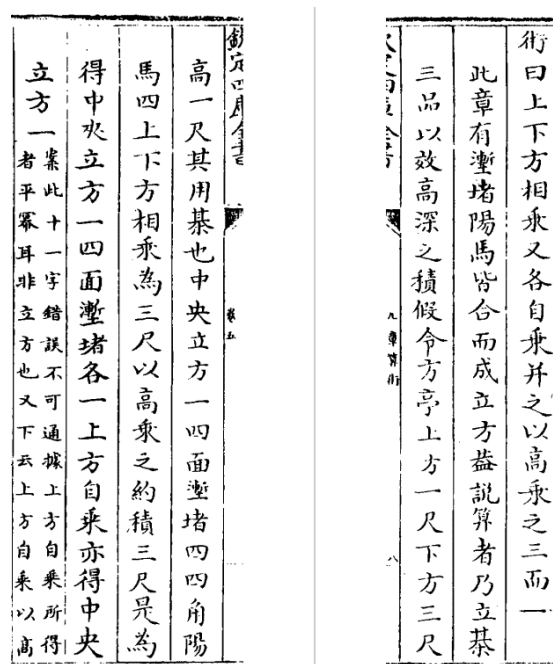 術曰上下方相乘又各自乗并之以高乘之三而一
此章有壍堵陽馬皆合而成立方葢說算者乃立棊
三品以效高深之積假令方亭上方一尺下方三尺
九章算術
八
欽定四庫全書
卷五
高一尺其用棊也中央立方一四面壍堵四四角陽
馬四上下方相乘為三尺以高乘之約積三尺是為
得中央立方一四面壍堵各一上方自乗亦得中央
立方一
案此十一字錯誤不可通據上方自乗所得
者平冪耳非立方也又下云上方自乗以高